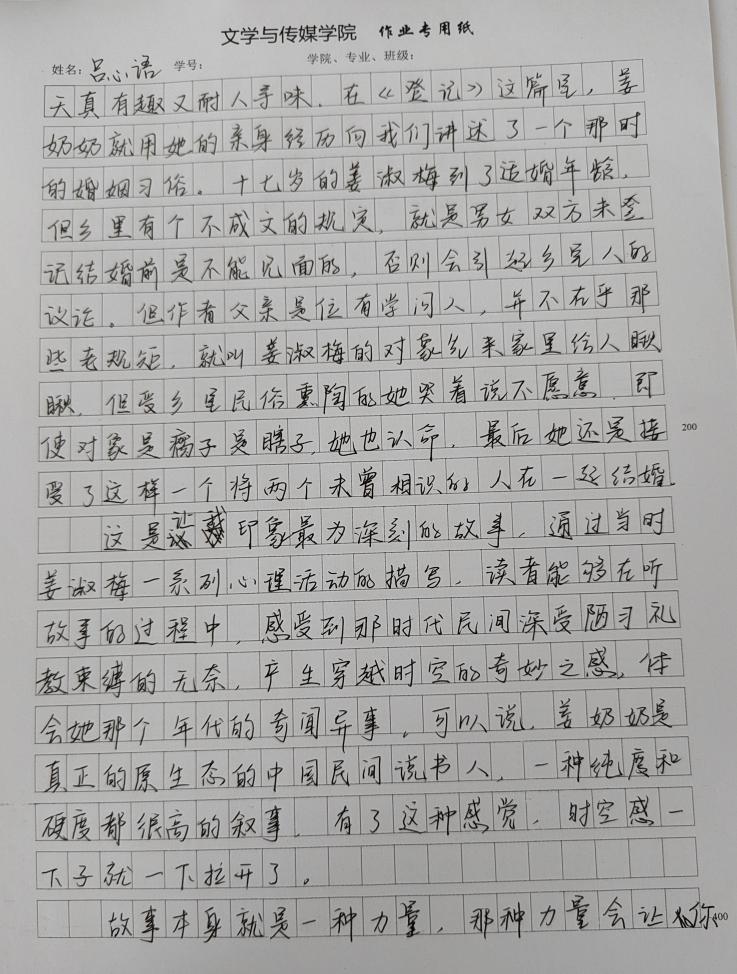 文学与传媒学院 作业专用纸
姓名：吕心语 学号： 学院、专业、班级：
天真有趣又耐人寻味．在《登记》这篇里，姜
奶奶就用她的亲身经历向我们讲述了一个那时
的婚姻习俗。十七岁的姜淑梅到了适婚年龄，
但乡里有个不成文的规定，就是男女双方未登
记结婚前是不能见面的，否则会引起乡里人的
议论。但作者父亲是位有学问人，并不在乎那
些老规矩，就叫姜淑梅的对象先来家里给人瞅
瞅，但受乡里民俗熏陶的她哭着说不愿意，即
使对象是瘸子是瞎子，她也认命，最后她还是接 200
受了这样一个将两个未曾相识的人在一起结婚．
这是让我印象最为深刻的故事，通过当时
姜淑梅一系列心理活动的描写，读者能够在听
故事的过程中，感受到那时代民间深受陋习礼
教束缚的无奈，产生穿越时空的奇妙之感，体
会她那个年代的奇闻异事，可以说，姜奶奶是
真正的原生态的中国民间说书人，一种纯度和
硬度都很高的叙事．有了这种感觉，时空感一
下子就一下拉开了。
故事本身就是一种力量，那种力量会让你 400